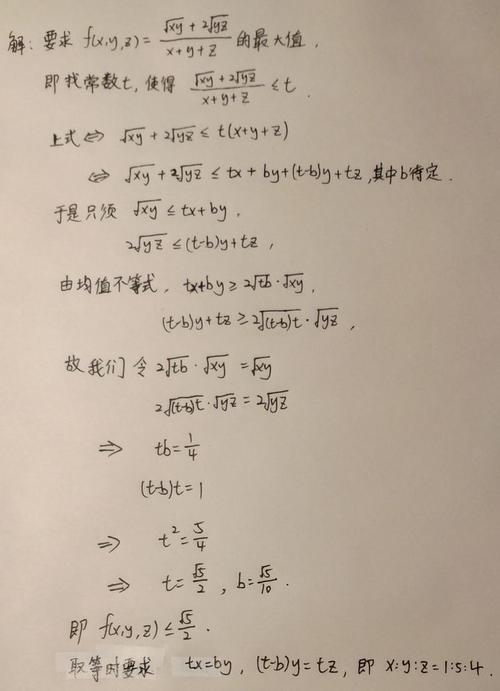 解: 要求 f(x,y,z) = (√xy + 2√yz)/(x+y+z) 的最大值,
即找常数t, 使得 (√xy + 2√yz)/(x+y+z) ≤ t.
上式 ⇔ √xy + 2√yz ≤ t(x+y+z)
⇔ √xy + 2√yz ≤ tx + by + (t-b)y + tz, 其中b待定.
于是只须 √xy ≤ tx + by,
2√yz ≤ (t-b)y + tz,
由均值不等式, tx+by ≥ 2√tb · √xy,
(t-b)y + tz ≥ 2√(t-b)t · √yz,
故我们令 2√tb · √xy = √xy
2√(t-b)t · √yz = 2√yz
⇒ tb = 1/4
(t-b)t = 1
⇒ t² = 5/4
⇒ t = √5/2, b = √5/10.
即 f(x,y,z) ≤ √5/2.
取等时要求 tx=by, (t-b)y = tz, 即 x:y:z = 1:5:4.